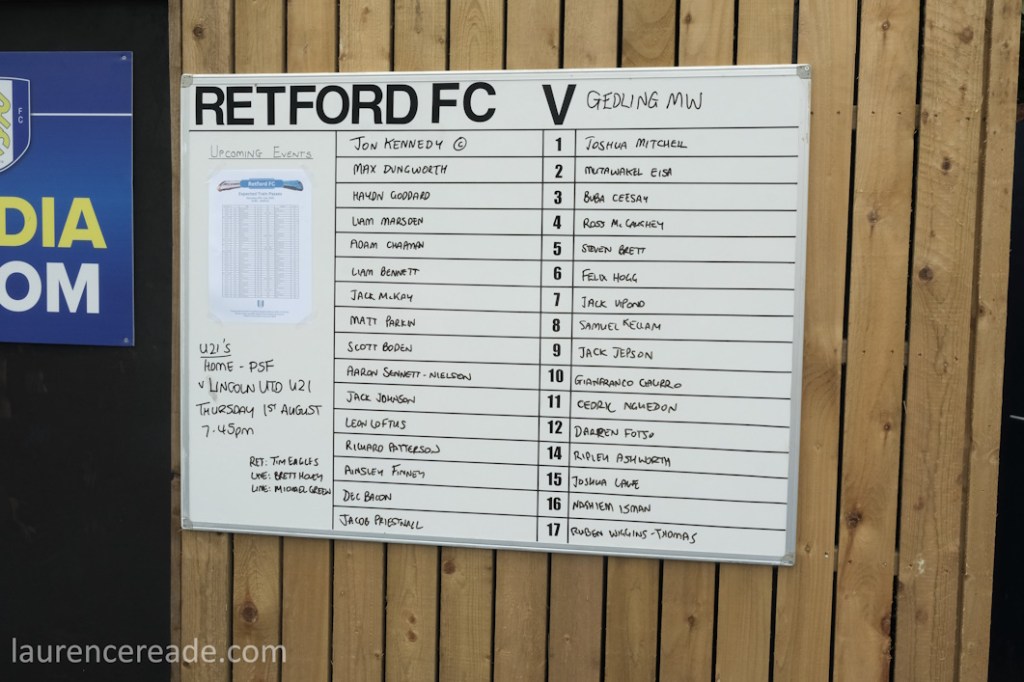 RETFORD FC V GEDLING MW
UPCOMING EVENTS
Retford FC
JON KENNEDY © 1 JOSHUA MITCHELL
MAX DUNGWORTH 2 MUTAWAKEL EISA
HAYDN GODDARD 3 BUBA CEESAY
LIAM MARSDEN 4 ROSS McCAUGHEY
ADAM CHAPMAN 5 STEVEN BRETT
LIAM BENNETT 6 FELIX HOGG
JACK McKAY 7 JACK UPOND
MATT PARKIN 8 SAMUEL KELLAM
SCOTT BODEN 9 JACK JEPSON
AARON SENNETT-NIELSON 10 GIANFRANCO CHURRO
JACK JOHNSON 11 CEDRIC NGUEDON
LEON LOFTUS 12 DARREN FOTSO
RICHARD PATTERSON 14 RIPLEY ASHWORTH
AINSLEY FINNEY 15 JOSHUA
DEC BACON 16 ISMAN
JACOB PRIESTNALL 17 RUBEN WIGGINS-THOMAS
U21'S
HOME - PSF
v LINCOLN UTD U21
THURSDAY 1ST AUGUST
7.45pm
REF: TIM EAGLES
LINE: BRETT
LINE: MICHAEL GREEN
FC
DIA
OM
laurencereade.com